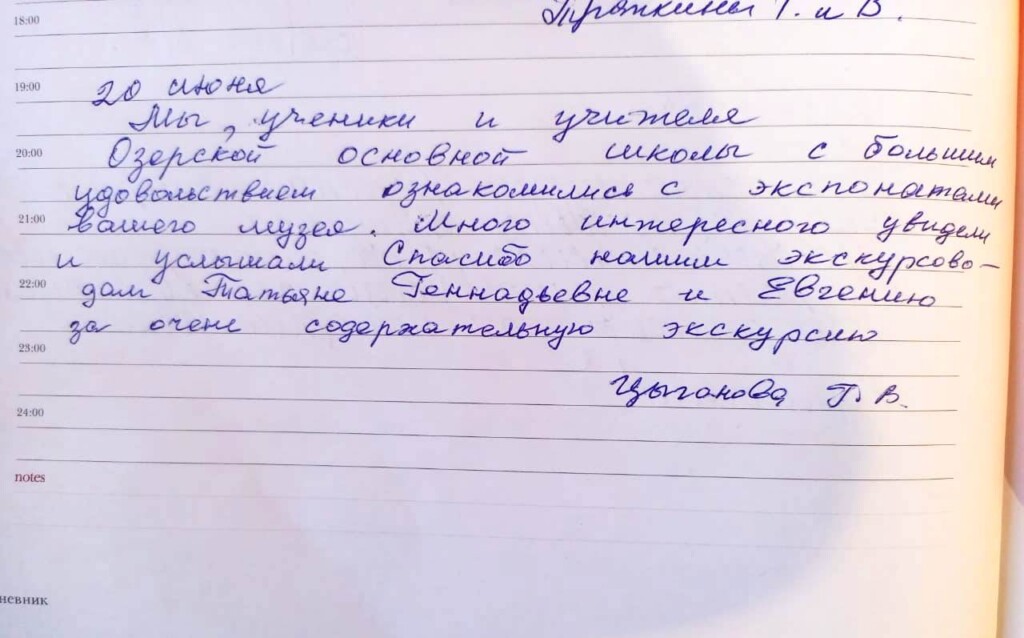 18:00
Г. и В.
19:00
20 июня
Мы, ученики и учителя
20:00
Озерской основной школы с большим
удовольствием ознакомились с экспонатами
21:00
вашего музея. Много интересного увидели
и услышали Спасибо нашим экскурсово-
22:00
дам Татьяне Геннадьевне и Евгению
за очень содержательную экскурсию
23:00
Цыганова Г. В.
24:00
notes
невник